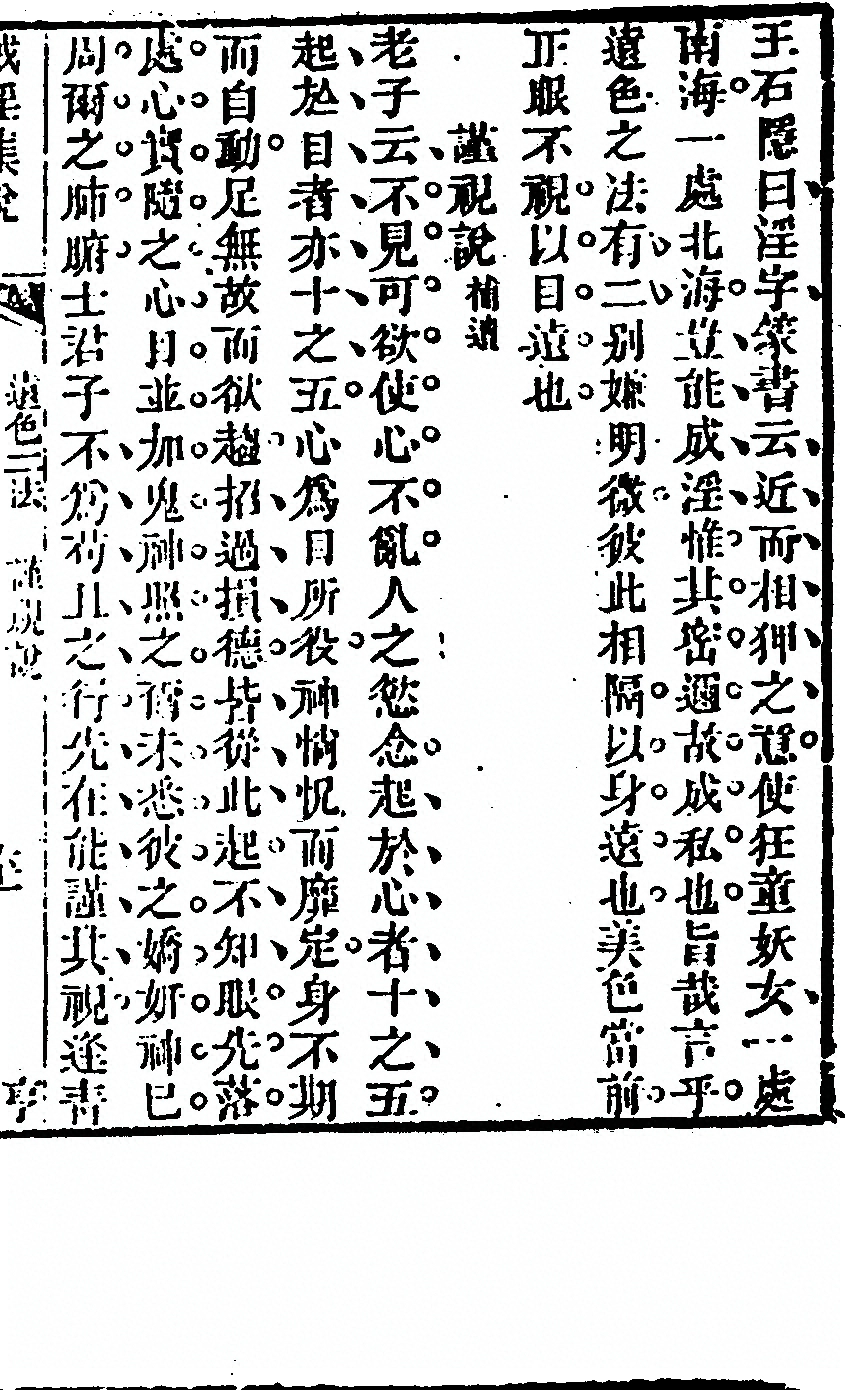 王石隱曰淫字篆書云近而相狎之意使狂童妖女一處
南海一處北海豈能成淫惟其密邇故成私也旨哉言乎
遠色之法有二別嫌明微彼此相隔以身遠也美色當前
正眼不視以目遠也
謹視說補遺
老子云不見可欲使心不亂人之慾念起於心者十之五
起於目者亦十之五心爲目所役神惝怳而靡定身不期
而自動足無故而欲趨招過損德皆從此起不知眼先落
處心實隨之心目並加鬼神照之層未悉彼之嬌妍神已
周爾之肺腑士君子不爲苟且之行先在能謹其視逢青
戒淫集說 遠色二法 謹視說